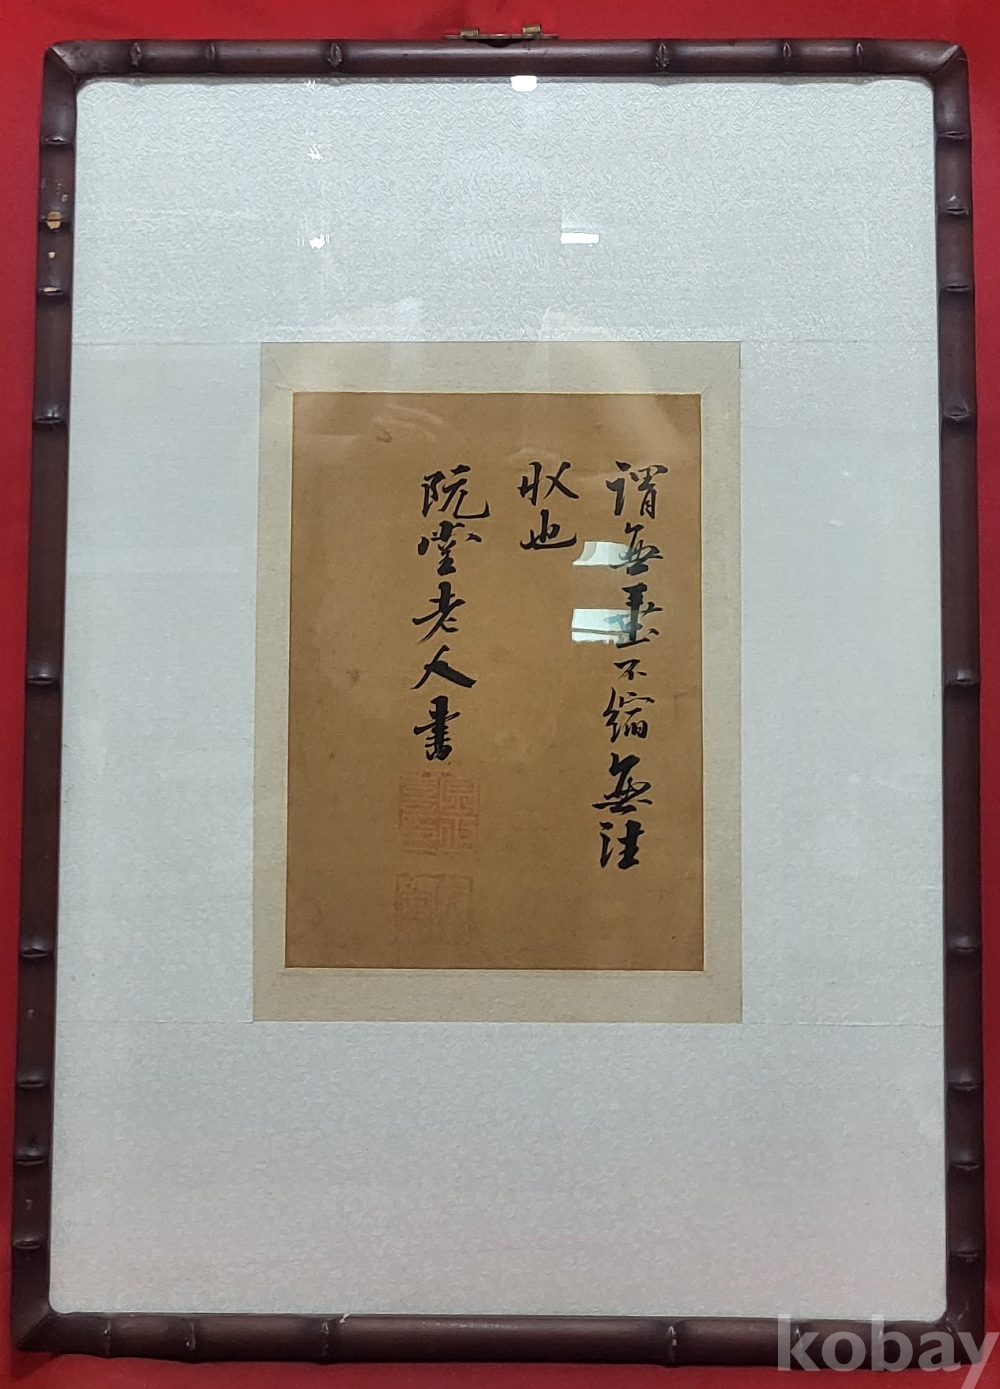 謂無垂不縮無往
收也
阮堂老人書
阮堂
kobay